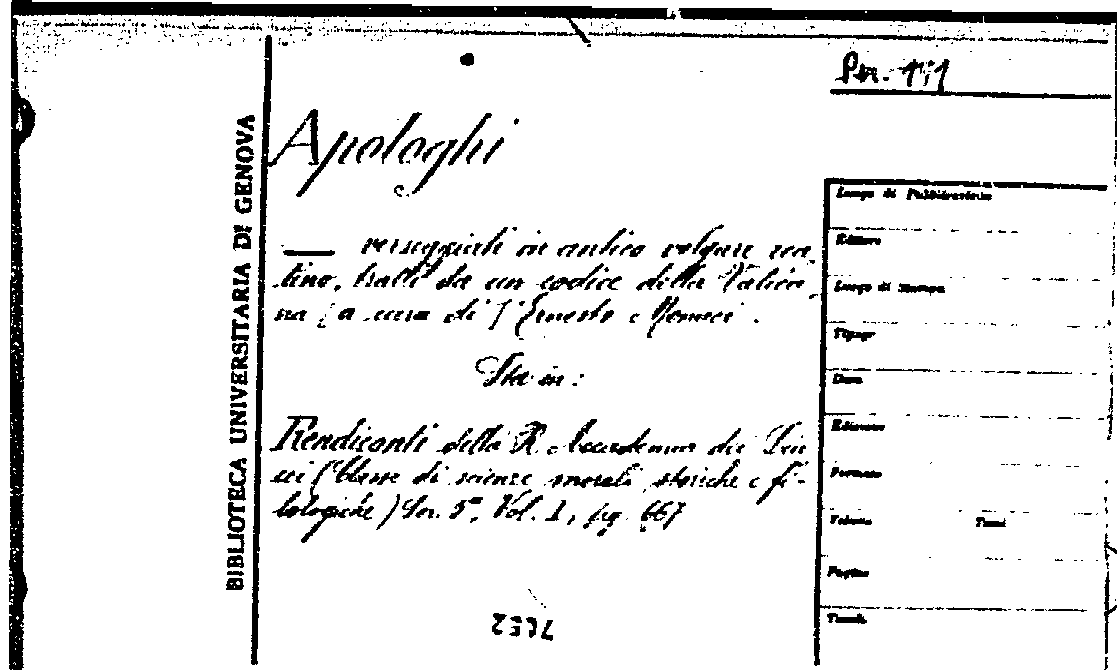 Per. 171
BIBLIOTECA UNIVERSITARIA DI GENOVA
Apologhi
— verseggiati in antico volgare rea-
tino, tratti da un codice della Vatica-
na [a cura di] Ernesto Monaci.
Sta in:
Rendiconti della R. Accademia dei Lin
cei (Classe di scienze morali, storiche e fi-
lologiche) Ser. 5ª, Vol. 1, pg. 667
Luogo di Pubblicazione
Editore
Luogo di Stampa
Tipogr
Data
Edizione
Formato
Volume Tomi
Pagine